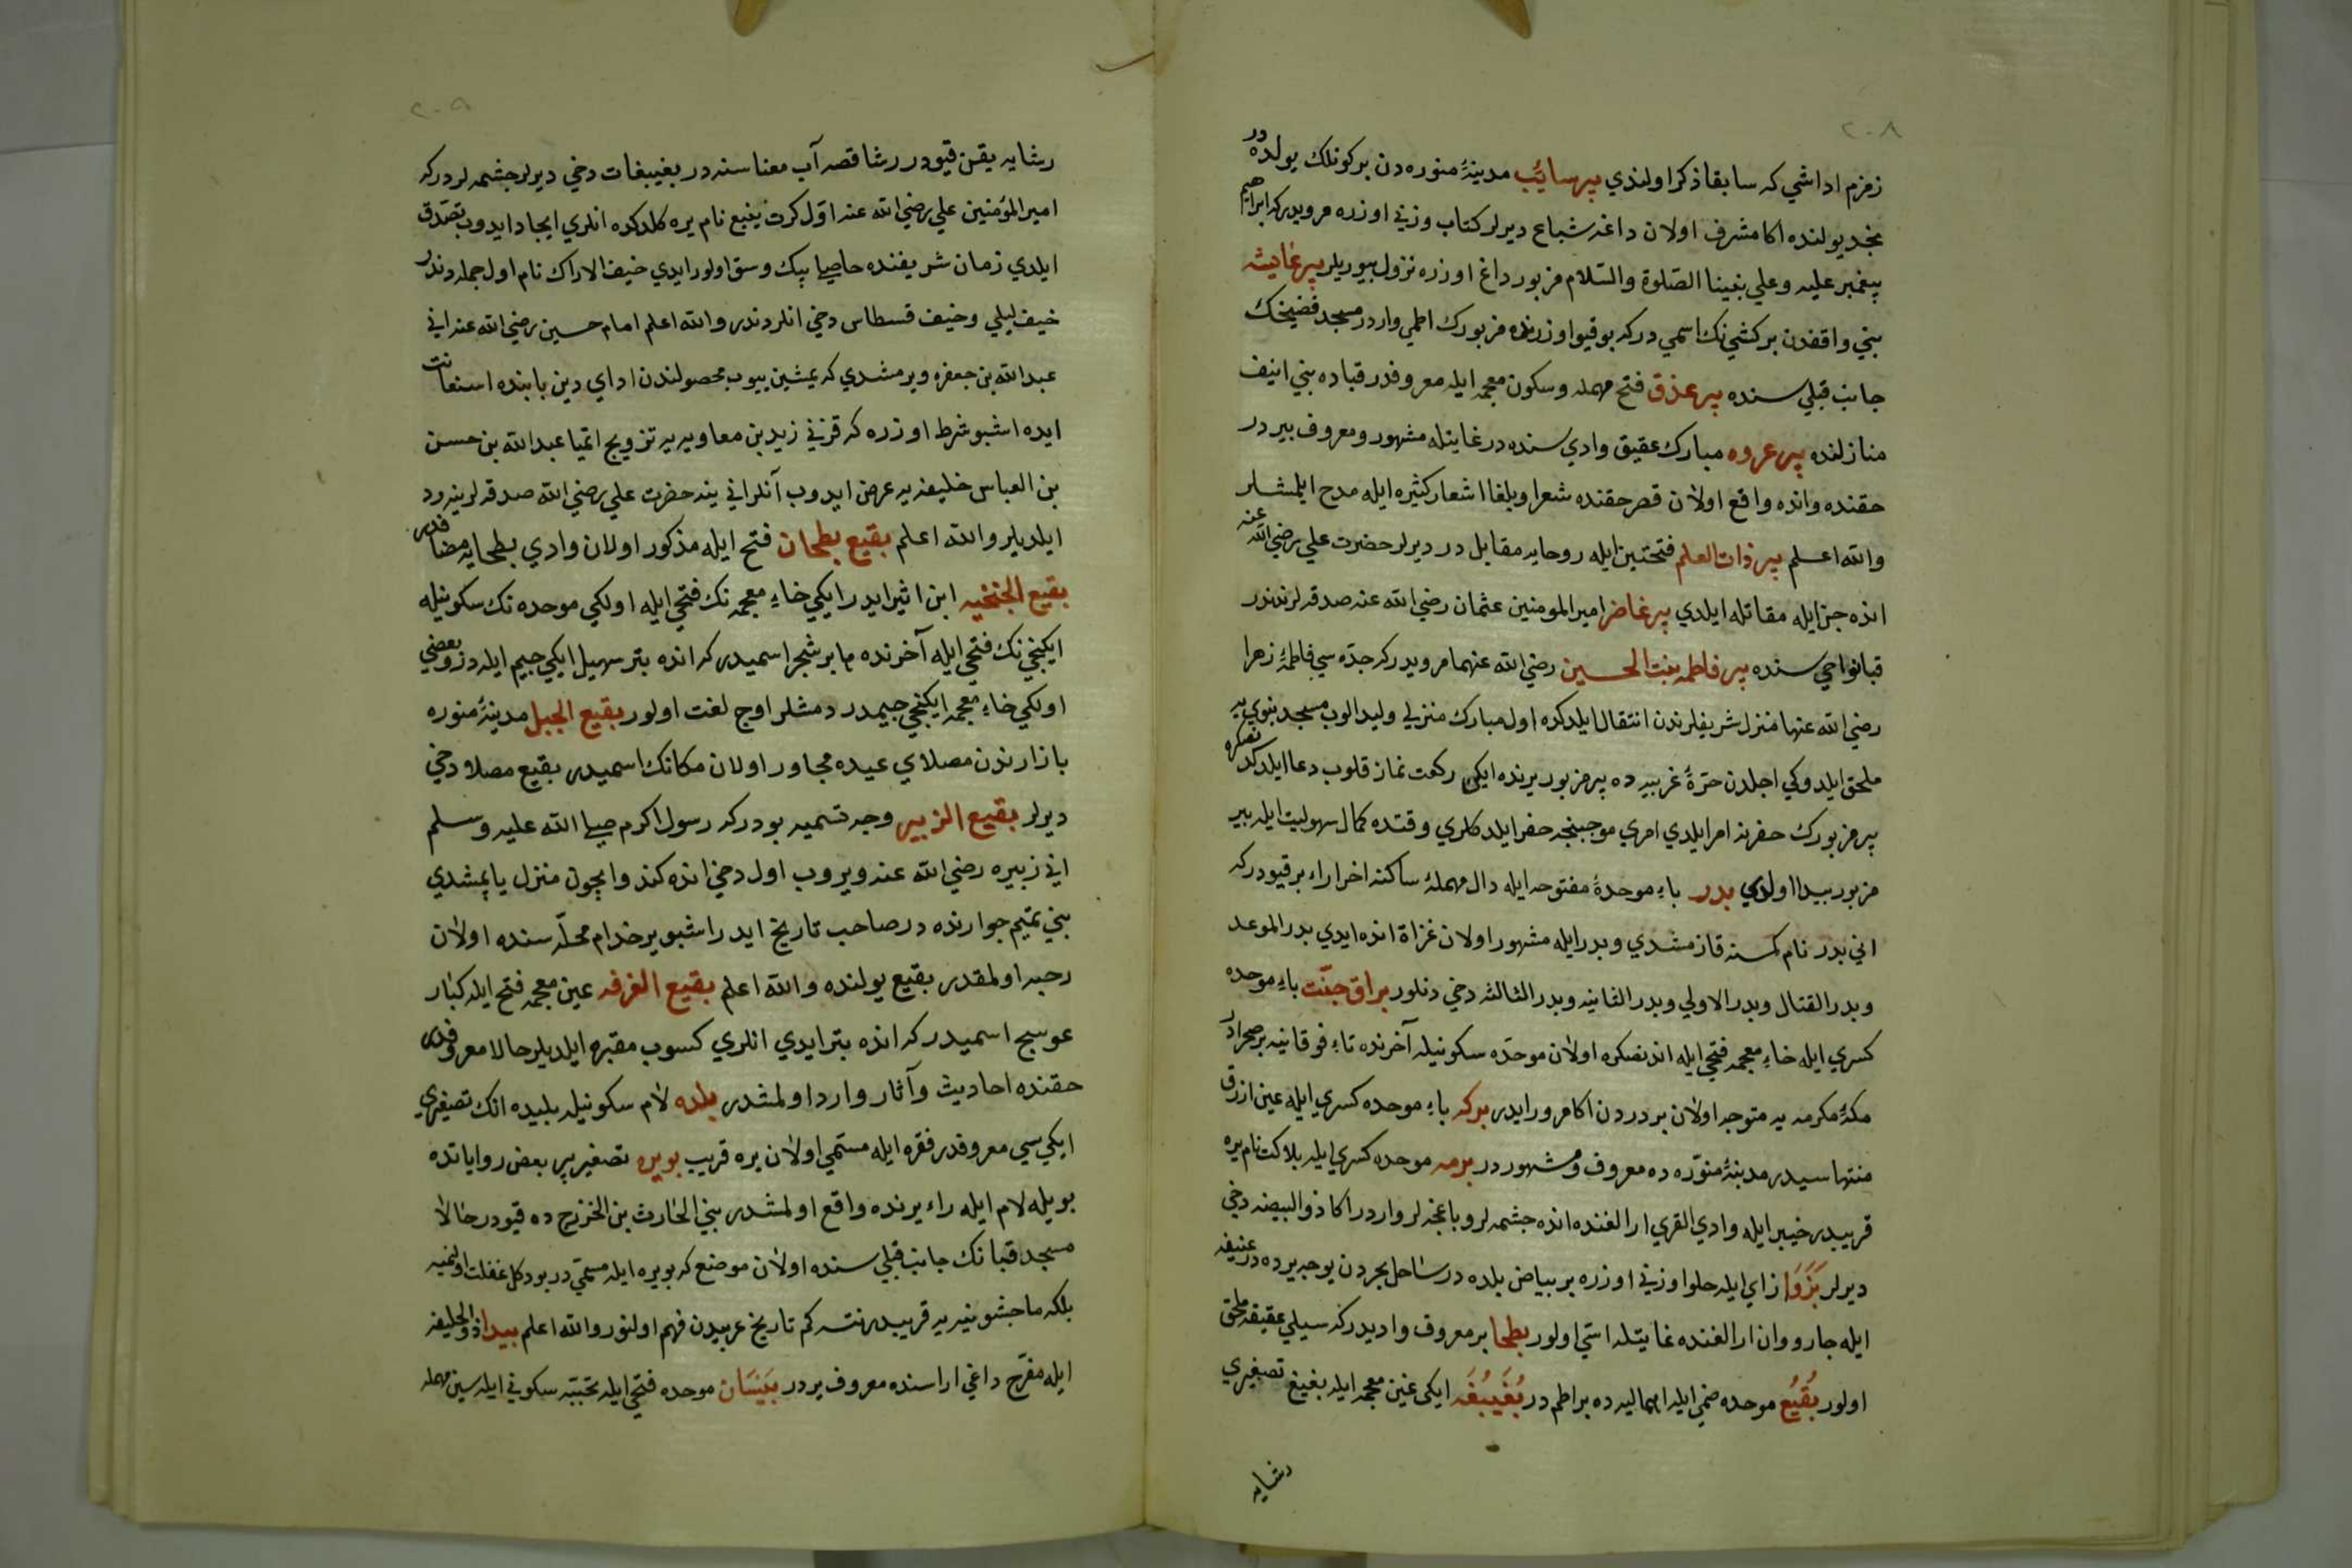 ٢٠٨
زمزم اداشي كه سابقا ذكر اولندي بير سائب مدينۀ منوره دن بر كونلك يولده در
نجد يولنده اكا مشرف اولان داغه شباع ديرلر كتاب وزني اوزره مرويدر كه ابراهيم
پيغمبر عليه وعلي نبينا الصلوة والسلام مزبور داغ اوزره نزول بيوريلر بير غاديثه
بني واقفدن بر كشي نك اسمي در كه بو قيو اوزرنده مزبورك اطمي واردر مسجد فضيخك
جانب قبلي سنده بير عذق فتح مهمله وسكون معجمه ايله معروفدر قباده بني انيف
منازلنده بير عروه مبارك عقيق وادي سنده در غايتله مشهور ومعروف بير در
حقنده وانده واقع اولان قصر حقنده شعرا وبلغا اشعار كثيره ايله مدح ايلمشلر
والله اعلم بير ذات العلم فتحتين ايله روحايه مقابل در ديرلر حضرت علي رضي الله عنه
انده جن ايله مقاتله ايلدي بير غاضر امير المومنين عثمان رضي الله عنه صدقه لرندندر
قبا نواحي سنده بير فاطمه بنت الحسين رضي الله عنهما مرويدر كه جده سي فاطمۀ زهرا
رضي الله عنها منزل شريفلرندن انتقال ايلدكده اول مبارك منزلي وليد الوب مسجد نبوي يه
ملحق ايلدوكي اجلدن حرۀ غربيه ده بير مزبور يرنده ايكي ركعت نماز قلوب دعا ايلدكدنصكره
بير مزبورك حفرنه امر ايلدي امري موجبنجه حفر ايلدكلري وقتده كمال سهوليت ايله بير
مزبور بيدا اولدي بدر باء موحدۀ مفتوحه ايله دال مهملۀ ساكنه اخرا راء بر قيودر كه
اني بدر نام كمسنه قازمشدي وبدر ايله مشهور اولان غزاة انده ايدي بدر الموعد
وبدر القتال وبدر الاولي وبدر الثانيه وبدر الثالثه دخي دنلور براق خبت باء موحده
كسري ايله خاء معجمه فتحي ايله اندنصكره اولان موحده سكونيله آخرنده تاء فوقانيه بر صحرادر
مكۀ مكرمه يه متوجه اولان بدردن اكا مرور ايدر بركه باء موحده كسري ايله عين ازرق
منتهاسيدر مدينۀ منوره ده معروف ومشهور در برمه موحده كسري ايله بلاكت نام يره
قريبدر خيبر ايله وادي القري ارالغنده انده چشمه لر وباغچه لر واردر اكا ذو البيضه دخي
ديرلر بَزَوَا زاي ايله حلوا وزني اوزره بر بياض بلده در ساحل بحردن يوجه يرده در عنيفه
ايله جار وودان ارالغنده غايتله استي اولور بطحا بر معروف واديدر كه سيلي عقيقه ملحق
اولور بُقَيُع موحده ضمي ايله اهماليه ده بر اطم در بُغَيبُغَه ايكي غين معجمه ايله بغيغ تصغيري
رشايه
٢٠٩
رشايه يقين قيودر رشا قصه آب معناسنه در بغيبغات دخي ديرلر چشمه لردر كه
امير المؤمنين علي رضي الله عنه اول كرت ينبع نام يره كلدكده انلري ايجاد ايدوب تصدق
ايلدي زمان شريفنده حاصلي بيك وسق اولور ايدي خيف الاراك نام اول جمله دندر
خيف ليلي وخيف قسطاس دخي انلردندر والله اعلم امام حسين رضي الله عنه اني
عبد الله بن جعفره ويرمشدي كه يمشين ييوب محصولندن اداي دين بابنده استعانت
ايده اشبو شرط اوزره كه قزني زيد بن معاويه يه تزويج اتميا عبد الله بن حسن
بن العباس خليفه يه عرض ايدوب آنلر اني ينه حضرت علي رضي الله صدقه لرينه رد
ايلديلر والله اعلم بقيع بطحان فتح ايله مذكور اولان وادي بطحايه مضافدر
بقيع الخبخبه ابن اثير ايدر ايكي خاء معجمه نك فتحي ايله اولكي موحده نك سكونيله
ايكنجي نك فتحي ايله آخرنده ها بر شجر اسميدر كه انده بتر سهيل ايكي جيم ايله در وبعضي
اولكي خاء معجمه ايكنجي جيمدر دمشلر اوج لغت اولور بقيع الجبل مدينۀ منوره
بازارندن مصلاي عيده مجاور اولان مكانك اسميدر بقيع مصلا دخي
ديرلر بقيع الزبير وجه تسميه بودر كه رسول اكرم صلي الله عليه وسلم
اني زبيره رضي الله عنه ويروب اول دخي انده كندوايچون منزل ياپمشدي
بني تميم جوارنده در صاحب تاريخ ايدر اشبو ير خدام محله سنده اولان
رحبه اولمقدر بقيع يولنده والله اعلم بقيع الغرقد عين معجمه فتح ايله كبار
عوسج اسميدر كه انده بتر ايدي انلري كسوب مقبره ايلديلر حالا معروفدر
حقنده احاديث وآثار وارد اولمشدر بلده لام سكونيله بليده انك تصغيري
ايكي سي معروفدر فقره ايله مسمي اولان يره قريب بويره تصغير بير بعض رواياتده
بويله لام ايله راء يرنده واقع اولمشدر بني الحارث بن الخزرج ده قيودر حالا
مسجد قبا نك جانب قبلي سنده اولان موضع كه بويره ايله مسمي در بو دكل غفلت اولنميه
بلكه ماجشونيه يه قريبدر نته كم تاريخ عربيدن فهم اولنور والله اعلم بيدا ذو الحليفه
ايله مفرح داغي اراسنده معروف يردر بَيسَان موحده فتحي ايله تحتيه سكوني ايله سين مهمله